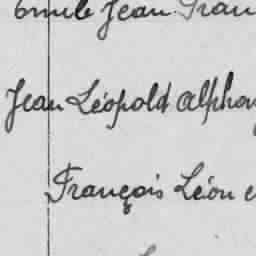 Emile Jean Fran
Jean Léopold Alphon
François Léon